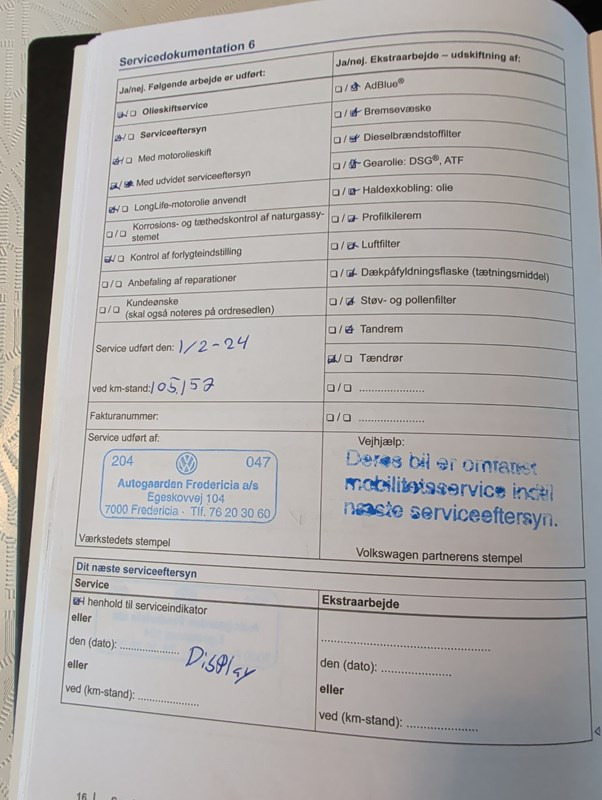 Servicedokumentation 6
Ja/nej. Følgende arbejde er udført:
Olieskiftservice
Serviceeftersyn
Med motorolieskift
Med udvidet serviceeftersyn
LongLife-motorolie anvendt
Korrosions- og tæthedskontrol af naturgassy-
stemet
Kontrol af forlygteindstilling
Anbefaling af reparationer
Kundeønske
(skal også noteres på ordresedlen)
Service udført den: 1/2-24
ved km-stand: 105.157
Fakturanummer:
Service udført af:
204 047
Autogaarden Fredericia a/s
Egeskovvej 104
7000 Fredericia · Tlf. 76 20 30 60
Værkstedets stempel
Ja/nej. Ekstraarbejde – udskiftning af:
AdBlue®
Bremsevæske
Dieselbrændstoffilter
Gearolie: DSG®, ATF
Haldexkobling: olie
Profilkilerem
Luftfilter
Dækpåfyldningsflaske (tætningsmiddel)
Støv- og pollenfilter
Tandrem
Tændrør
Vejhjælp:
Deres bil er omfattet
mobilitetsservice indtil
næste serviceeftersyn.
Volkswagen partnerens stempel
Dit næste serviceeftersyn
Service
I henhold til serviceindikator
eller
den (dato): ....................
Display
eller
ved (km-stand): ....................
Ekstraarbejde
den (dato): ....................
eller
ved (km-stand): ....................
16